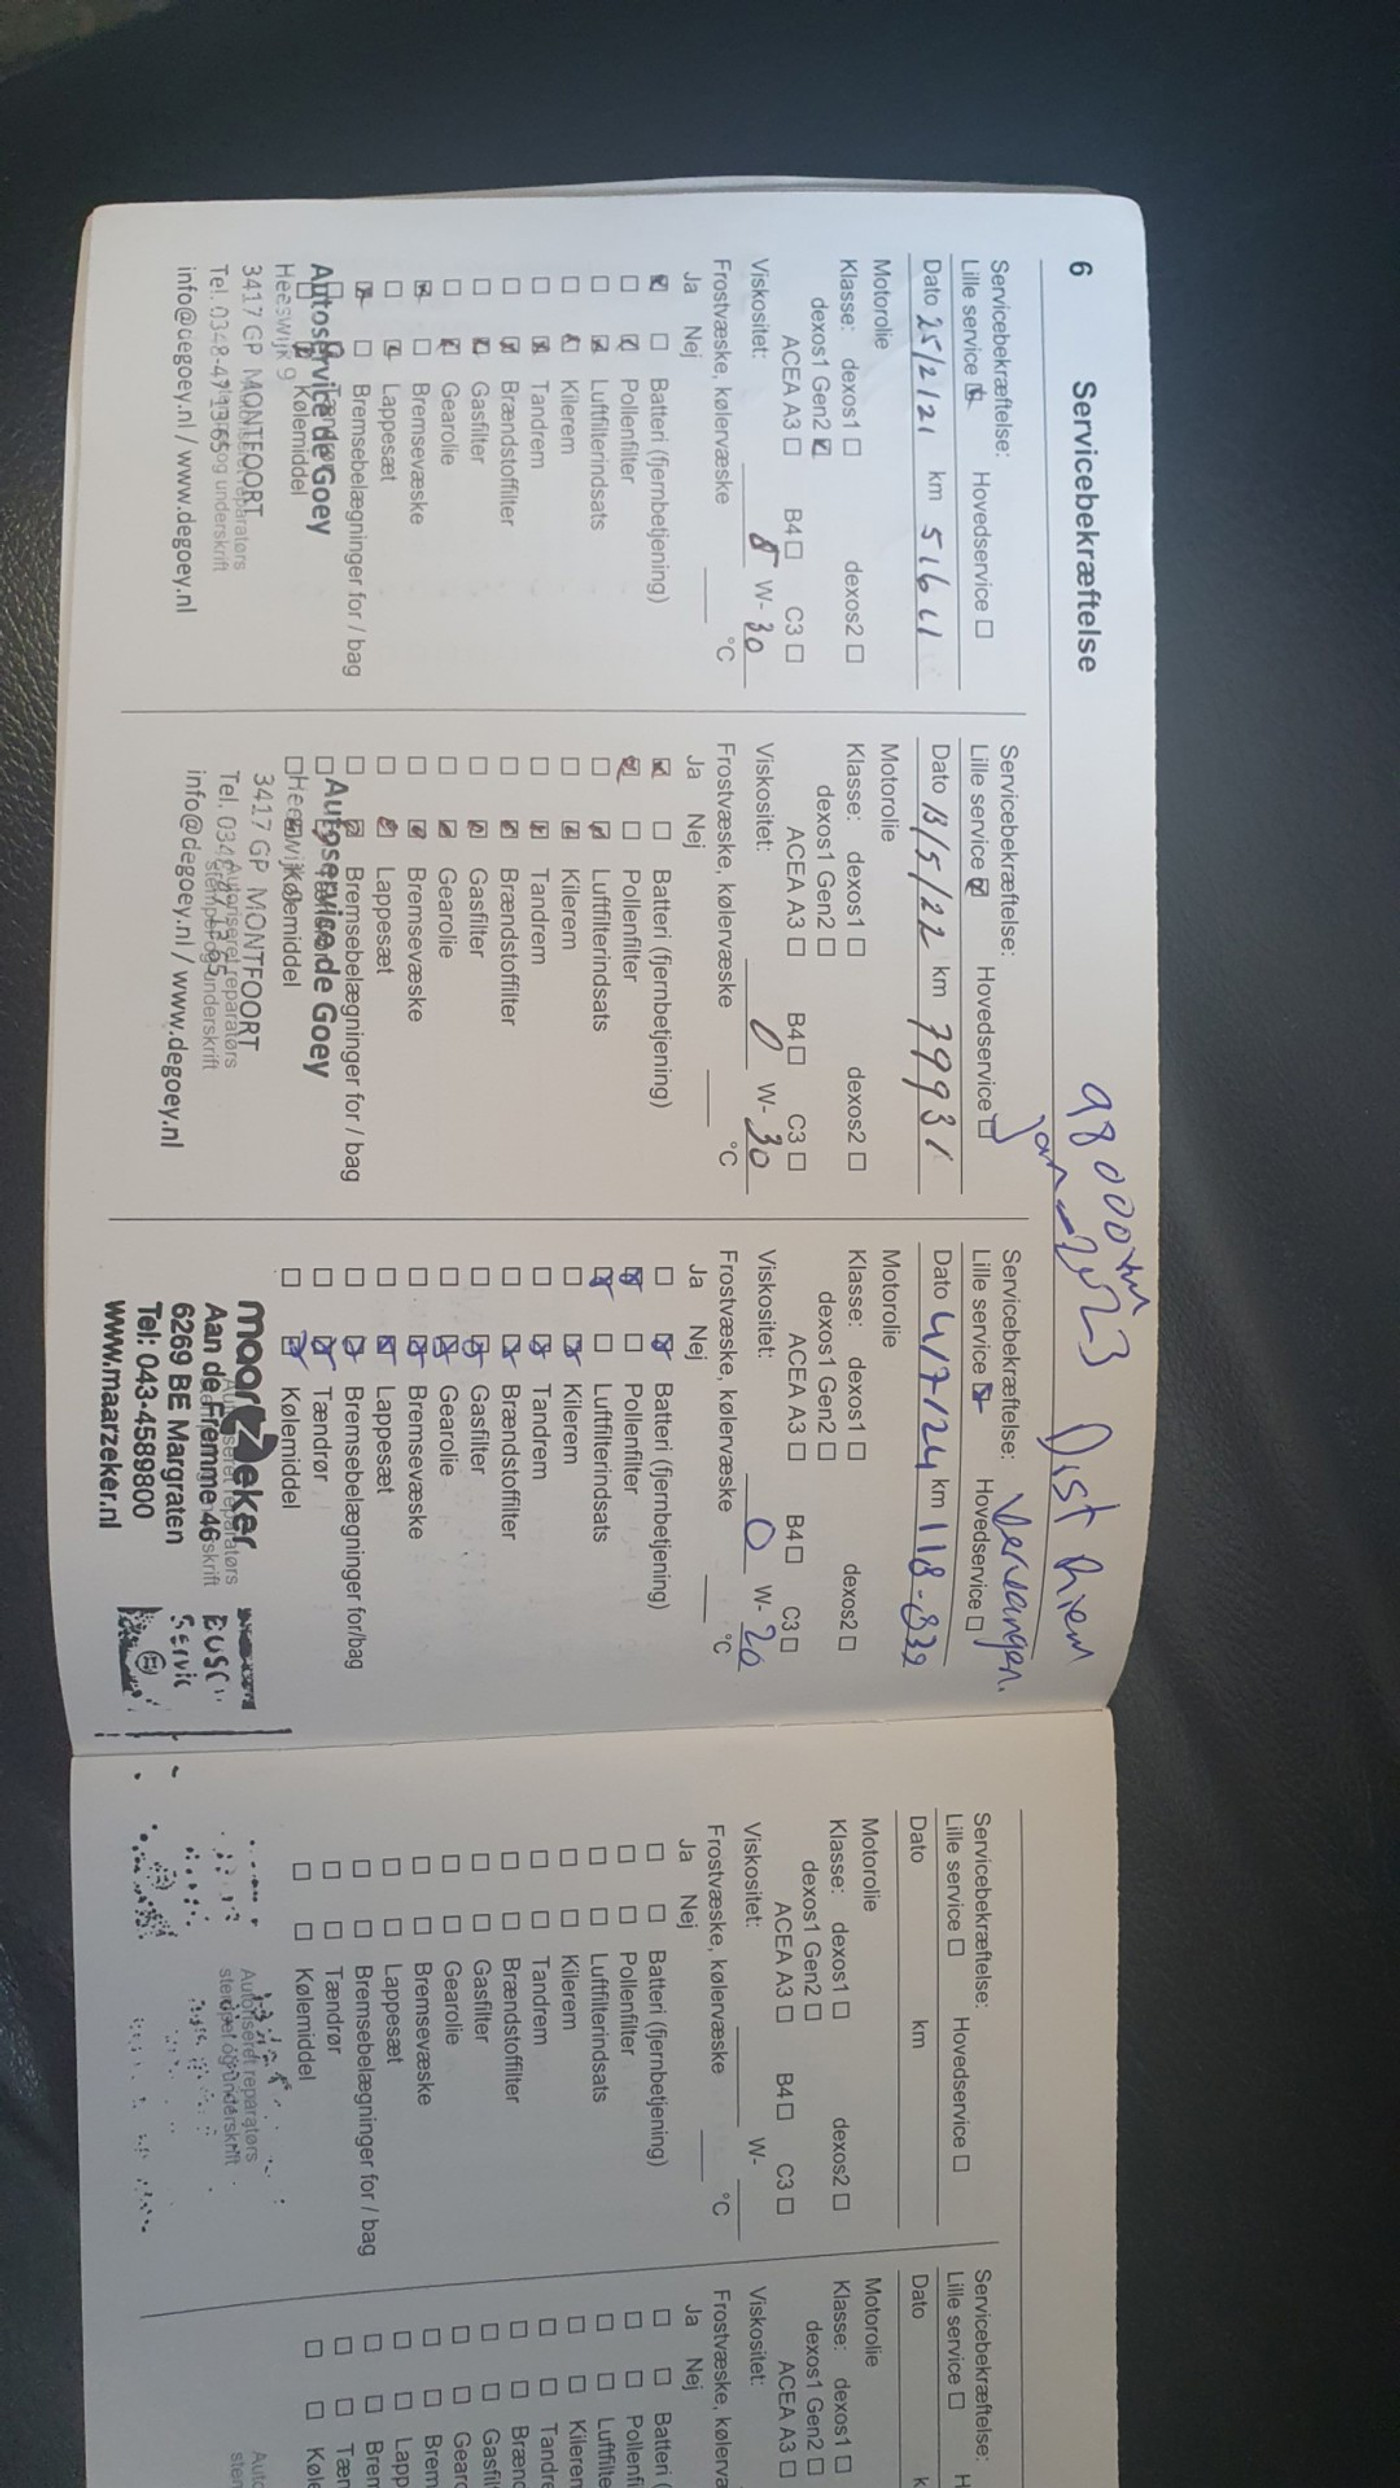 6 Servicebekræftelse
98000km
Jan 2023 Dist Riem
Vervangen.
Servicebekræftelse:
Lille service ☒ Hovedservice ☐
Dato 25/2/21 km 51641
Motorolie
Klasse: dexos1 ☐ dexos2 ☐
dexos1 Gen2 ☑
ACEA A3 ☐ B4 ☐ C3 ☐
Viskositet: W-30
Frostvæske, kølervæske °C
Ja Nej
☒ ☐ Batteri (fjernbetjening)
☐ ☒ Pollenfilter
☐ ☒ Luftfilterindsats
☐ ☒ Kilerem
☐ ☒ Tandrem
☐ ☒ Brændstoffilter
☐ ☒ Gasfilter
☐ ☒ Gearolie
☒ ☐ Bremsevæske
☐ ☒ Lappesæt
☒ ☐ Bremsebelægninger for / bag
Kølemiddel
Autoservice de Goey
3417 GP MONTFOORT
info@degoey.nl / www.degoey.nl
Servicebekræftelse:
Lille service ☑ Hovedservice ☐
Dato 13/5/22 km 79931
Motorolie
Klasse: dexos1 ☐ dexos2 ☐
dexos1 Gen2 ☐
ACEA A3 ☐ B4 ☐ C3 ☐
Viskositet: 0 W-30
Frostvæske, kølervæske °C
Ja Nej
☒ ☐ Batteri (fjernbetjening)
☒ ☐ Pollenfilter
☐ ☒ Luftfilterindsats
☐ ☒ Kilerem
☐ ☒ Tandrem
☐ ☒ Brændstoffilter
☐ ☒ Gasfilter
☐ ☒ Gearolie
☐ ☒ Bremsevæske
☐ ☒ Lappesæt
☐ ☒ Bremsebelægninger for / bag
☐ ☒ Kølemiddel
Autoservice de Goey
3417 GP MONTFOORT
Autoriseret reparatørs
info@degoey.nl / www.degoey.nl
Servicebekræftelse:
Lille service ☒ Hovedservice ☐
Dato 4/7/24 km 118-839
Motorolie
Klasse: dexos1 ☐ dexos2 ☐
dexos1 Gen2 ☐
ACEA A3 ☐ B4 ☐ C3 ☐
Viskositet: 0 W-20
Frostvæske, kølervæske °C
Ja Nej
☐ ☒ Batteri (fjernbetjening)
☒ ☐ Pollenfilter
☒ ☐ Luftfilterindsats
☐ ☒ Kilerem
☐ ☒ Tandrem
☐ ☒ Brændstoffilter
☐ ☒ Gasfilter
☐ ☒ Gearolie
☐ ☒ Bremsevæske
☐ ☒ Lappesæt
☐ ☒ Bremsebelægninger for/bag
☐ ☒ Tændrør
☐ ☒ Kølemiddel
maarzeker
Aan de Fremme 46
6269 BE Margraten
Tel: 043-4589800
www.maarzeker.nl
Servicebekræftelse:
Lille service ☐ Hovedservice ☐
Dato km
Motorolie
Klasse: dexos1 ☐ dexos2 ☐
dexos1 Gen2 ☐
ACEA A3 ☐ B4 ☐ C3 ☐
Viskositet: W-
Frostvæske, kølervæske °C
Ja Nej
☐ ☐ Batteri (fjernbetjening)
☐ ☐ Pollenfilter
☐ ☐ Luftfilterindsats
☐ ☐ Kilerem
☐ ☐ Tandrem
☐ ☐ Brændstoffilter
☐ ☐ Gasfilter
☐ ☐ Gearolie
☐ ☐ Bremsevæske
☐ ☐ Lappesæt
☐ ☐ Bremsebelægninger for / bag
☐ ☐ Tændrør
☐ ☐ Kølemiddel
Autoriseret reparatørs
stempel og underskrift
Servicebekræftelse:
Lille service ☐ H
Dato k
Motorolie
Klasse: dexos1 ☐
dexos1 Gen2 ☐
ACEA A3 ☐
Viskositet:
Frostvæske, kølerva
Ja Nej
☐ ☐ Batteri (
☐ ☐ Pollenfi
☐ ☐ Luftfilte
☐ ☐ Kileren
☐ ☐ Tandre
☐ ☐ Bræn
☐ ☐ Gasfil
☐ ☐ Gearo
☐ ☐ Brem
☐ ☐ Lapp
☐ ☐ Brem
☐ ☐ Tæn
☐ ☐ Køle
Auto
sten